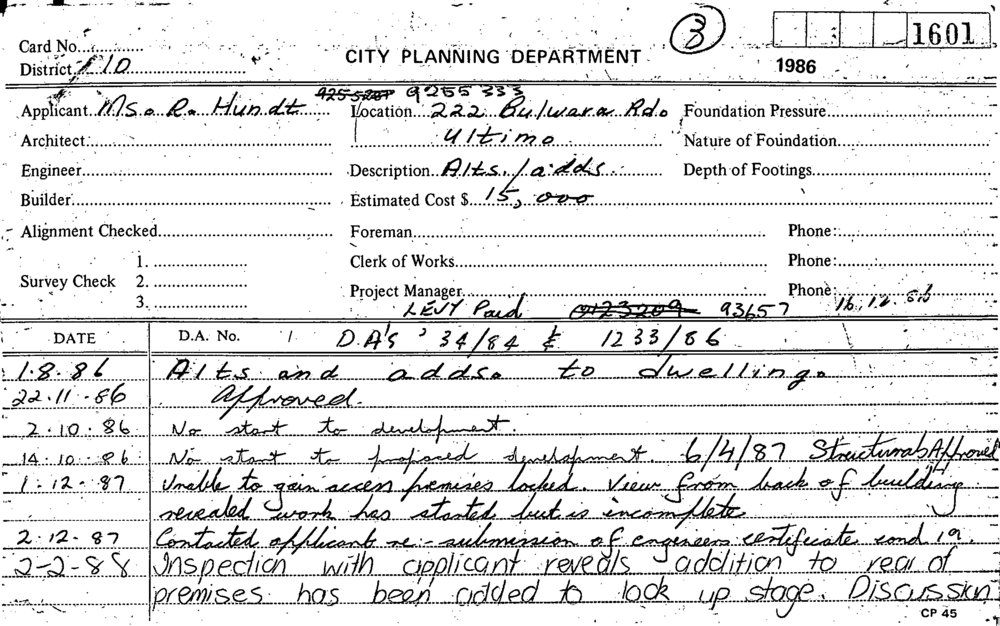 3
1601
Card No.
District 110
CITY PLANNING DEPARTMENT
1986
9255209 9255333
Applicant Ms. R. Hundt
Location 222 Bulwara Rd.
Foundation Pressure
Architect
Ultimo
Nature of Foundation
Engineer
Description Alts./adds.
Depth of Footings
Builder
Estimated Cost $ 15,000
Alignment Checked
Foreman
Phone:
1.
Clerk of Works
Phone:
Survey Check 2.
Project Manager
Phone:
3.
LEVY Paid 0123209 93657 16.12.86
DATE D.A. No. D.A's 34/84 & 1233/86
1.8.86 Alts and adds. to dwelling.
22.11.86 Approved.
2.10.86 No start to development.
14.10.86 No start to proposed development. 6/4/87 Structurals Approved
1.12.87 Unable to gain access premises locked. View from back of building
revealed work has started but is incomplete
2.12.87 Contacted applicant re-submission of engineers certificate cond 19.
2-2-88 Inspection with applicant reveals addition to rear of
premises has been added to lock up stage. Discussion
CP 45